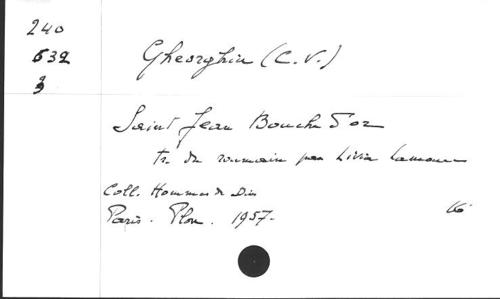 240
632
3
Gheorghiu (C. V.)
Saint Jean Bouche d'or
tr. du roumain par Livia Lamoure
Coll. Hommes de Dieu
Paris. Plon. 1957.
16